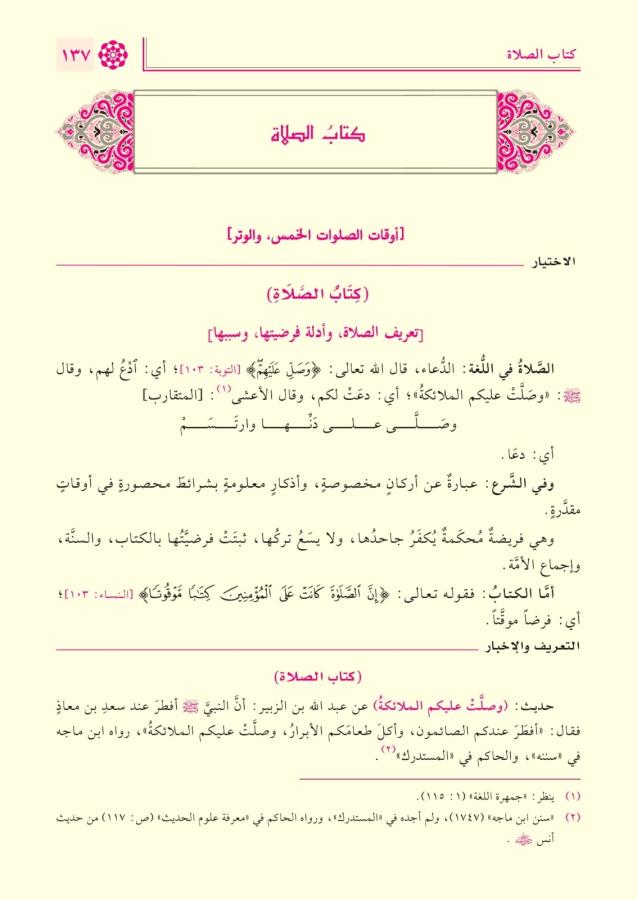 كتاب الصلاة
١٣٧
كتابُ الصلاة
[أوقات الصلوات الخمس، والوتر]
الاختيار
(كِتَابُ الصَّلَاةِ)
[تعريف الصلاة، وأدلة فرضيتها، وسببها]
الصَّلاةُ في اللُّغة: الدُّعاء، قال الله تعالى: ﴿وَصَلِّ عَلَيْهِمْ﴾ [التوبة: ١٠٣]؛ أي: ٱدْعُ لهم، وقال
ﷺ: «وصَلَّتْ عليكم الملائكةُ»؛ أي: دعَتْ لكم، وقال الأعشى(١): [المتقارب]
وصَـــلَّـــى عـــلـــى دَنِّـــهـــا وارتَـــسَـــمْ
أي: دعَا.
وفي الشَّرع: عبارةٌ عن أركانٍ مخصوصةٍ، وأذكارٍ معلومةٍ بشرائطَ محصورةٍ في أوقاتٍ
مقدَّرةٍ.
وهي فريضةٌ مُحكَمةٌ يُكفَرُ جاحدُها، ولا يسَعُ تركُها، ثبتَتْ فرضيَّتُها بالكتاب، والسنَّة،
وإجماع الأمَّة.
أمَّا الكتابُ: فقوله تعالى: ﴿إِنَّ ٱلصَّلَوٰةَ كَانَتْ عَلَى ٱلْمُؤْمِنِينَ كِتَٰبًا مَّوْقُوتًا﴾ [النساء: ١٠٣]؛
أي: فرضاً موقَّتاً.
التعريف والإخبار
(كتاب الصلاة)
حديث: (وصلَّتْ عليكم الملائكةُ) عن عبد الله بن الزبير: أنَّ النبيَّ ﷺ أفطرَ عند سعدِ بن معاذٍ
فقال: «أفطَرَ عندكم الصائمون، وأكلَ طعامَكم الأبرارُ، وصلَّتْ عليكم الملائكةُ»، رواه ابن ماجه
في «سننه»، والحاكم في «المستدرك»(٢).
(١) ينظر: «جمهرة اللغة» (١: ١١٥).
(٢) «سنن ابن ماجه» (١٧٤٧)، ولم أجده في «المستدرك»، ورواه الحاكم في «معرفة علوم الحديث» (ص: ١١٧) من حديث
أنس رضي الله عنه.